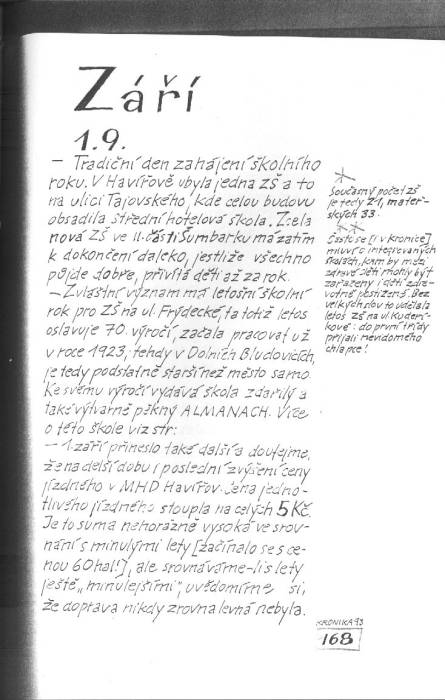 Září
1.9.
— Tradiční den zahájení školního
roku. V Havířově ubyla jedna ZŠ a to
na ulici Tajovského, kde celou budovu
obsadila střední hotelová škola. Zcela
nová ZŠ ve II. části Šumbarku má zatím
k dokončení daleko, jestliže všechno
půjde dobře, přivítá děti až za rok.
— Zvláštní význam má letošní školní
rok pro ZŠ na ul. Frýdecké, ta totiž letos
oslavuje 70. výročí, začala pracovat už
v roce 1923, tehdy v Dolních Bludovicích,
je tedy podstatně starší než město samo.
Ke svému výročí vydává škola zdařilý a
také výtvarně pěkný ALMANACH. Více
o této škole viz str:
— 1. září přineslo také další a doufejme,
že na delší dobu i poslední zvýšení ceny
jízdného v MHD Havířov. Cena jedno-
tlivého jízdného stoupla na celých 5 Kč.
Je to suma nehorázně vysoká ve srov-
nání s minulými lety [začínalo se s ce-
nou 60 hal!], ale srovnáváme-li s lety
ještě „minulejšími“, uvědomíme si,
že doprava nikdy zrovna levná nebyla.
Současný počet ZŠ
je tedy 21, mateř-
ských 33.
Často se [i v Kronice]
mluví o integrovaných
školách, kam by mezi
zdravé děti mohly být
zařazeny i děti zdra-
votně postižené. Bez
velkých slov to udělala
letos ZŠ na ul. Kudeří-
kové: do první třídy
přijali nevidomého
chlapce!
KRONIKA 93
168